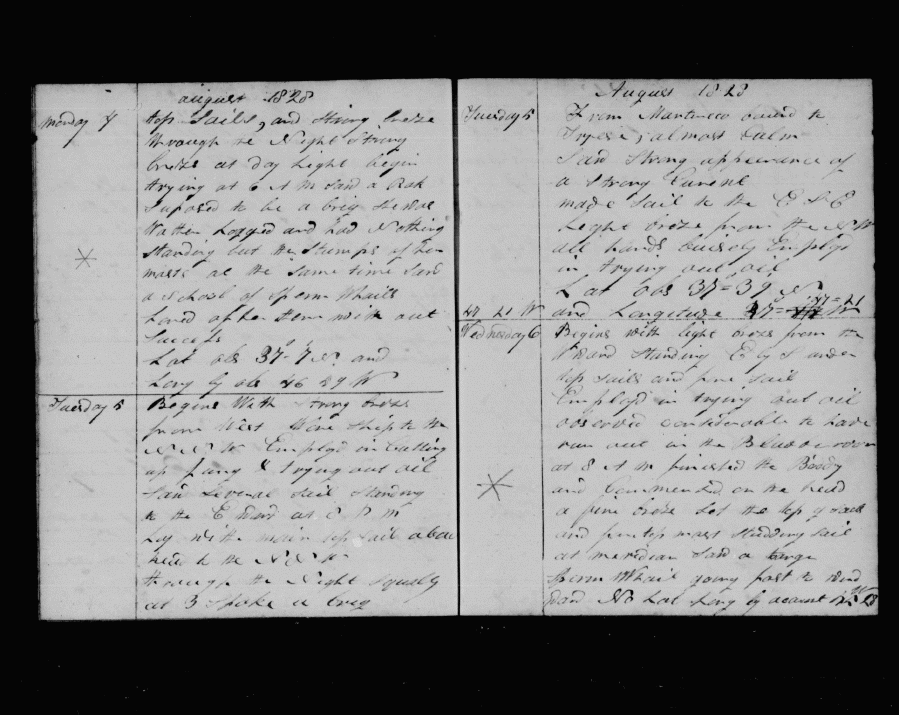 august 1828
Monday 4
top Sails, and Strong breze
through the Night Strong
breze at day Light begin
trying at 6 A M Saw a Bark
Suposed to be a brig She was
Watter Logged and had Nothing
Standing but the Stumps of her
masts at the Same time Saw
a School of Sperm Whails
Lored after them with out
Success
Lat obs 37-7 N. and
Long by obs 46 59 W
Tuesday 5
Begins With Strong brezes
from West Wore Ship to the
N N W Employd in Cutting
up & trying out oil
Saw Several Sail Standing
to the E ward at 8 P M
Lay with the main top Sail aback
head to the
through the Night Squaly
at 3 Spoke a brig
August 1828
Tuesday 5
From bound to
almost Calm
Saw Strong appearance of
a Strong Curent
made Sail to the E S E
Light breze from the N W
all hands buisely Employd
in trying out oil
Lat obs 37=39 N
47=21
47 21 W
and Longitude 47= W
Wednesday 6
Begins with light brezes from the
Standing E by S under
top Sails and fore Sail
Employd in trying out oil
observed considerable to have
run out in the Blubber room
at 8 A M finished the Boddy
and Commenced on the head
a fine breze Set the top
and fore top mast Studding Sail
at meridian Saw a large
Sperm Whail going fast to wind
ward No Lat Long by acount